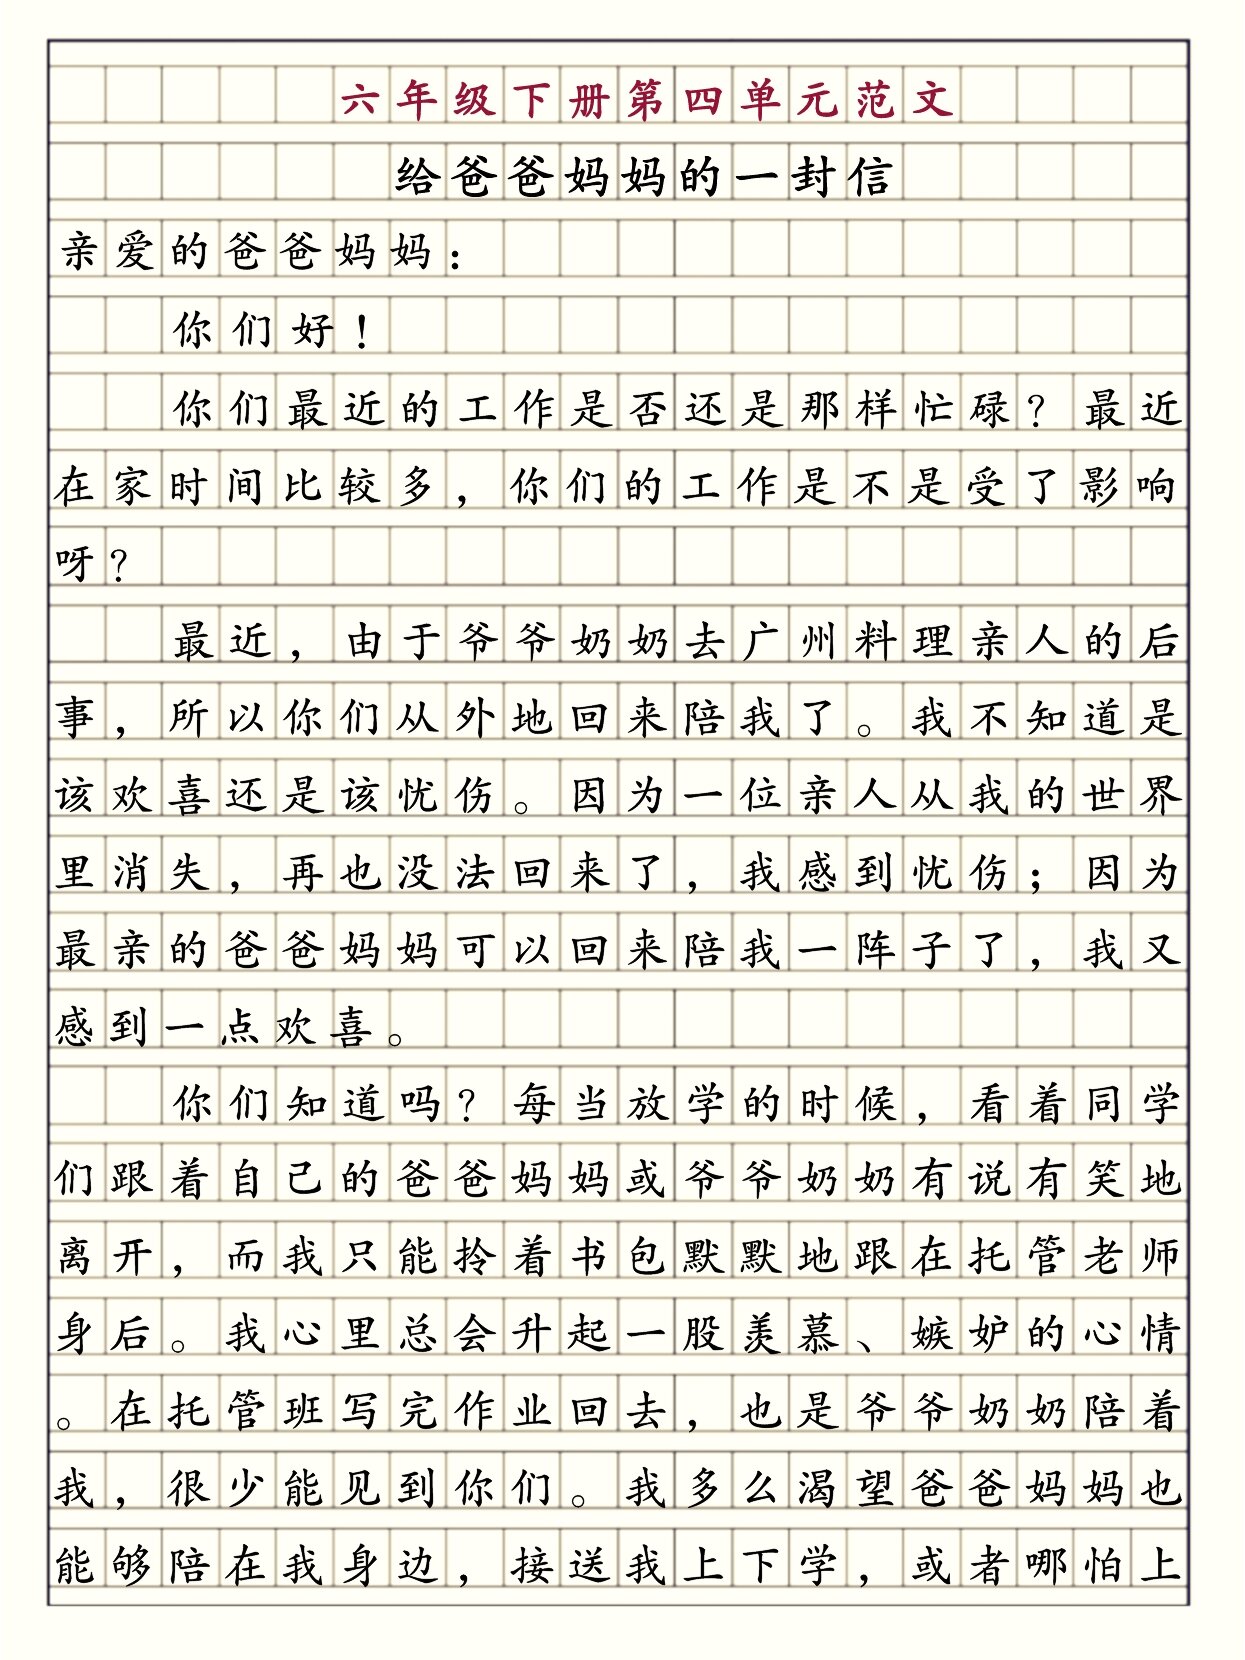 六年级下册第四单元范文
给爸爸妈妈的一封信
亲爱的爸爸妈妈：
你们好！
你们最近的工作是否还是那样忙碌？最近
在家时间比较多，你们的工作是不是受了影响
呀？
最近，由于爷爷奶奶去广州料理亲人的后
事，所以你们从外地回来陪我了。我不知道是
该欢喜还是该忧伤。因为一位亲人从我的世界
里消失，再也没法回来了，我感到忧伤；因为
最亲的爸爸妈妈可以回来陪我一阵子了，我又
感到一点欢喜。
你们知道吗？每当放学的时候，看着同学
们跟着自己的爸爸妈妈或爷爷奶奶有说有笑地
离开，而我只能拎着书包默默地跟在托管老师
身后。我心里总会升起一股羡慕、嫉妒的心情
。在托管班写完作业回去，也是爷爷奶奶陪着
我，很少能见到你们。我多么渴望爸爸妈妈也
能够陪在我身边，接送我上下学，或者哪怕上